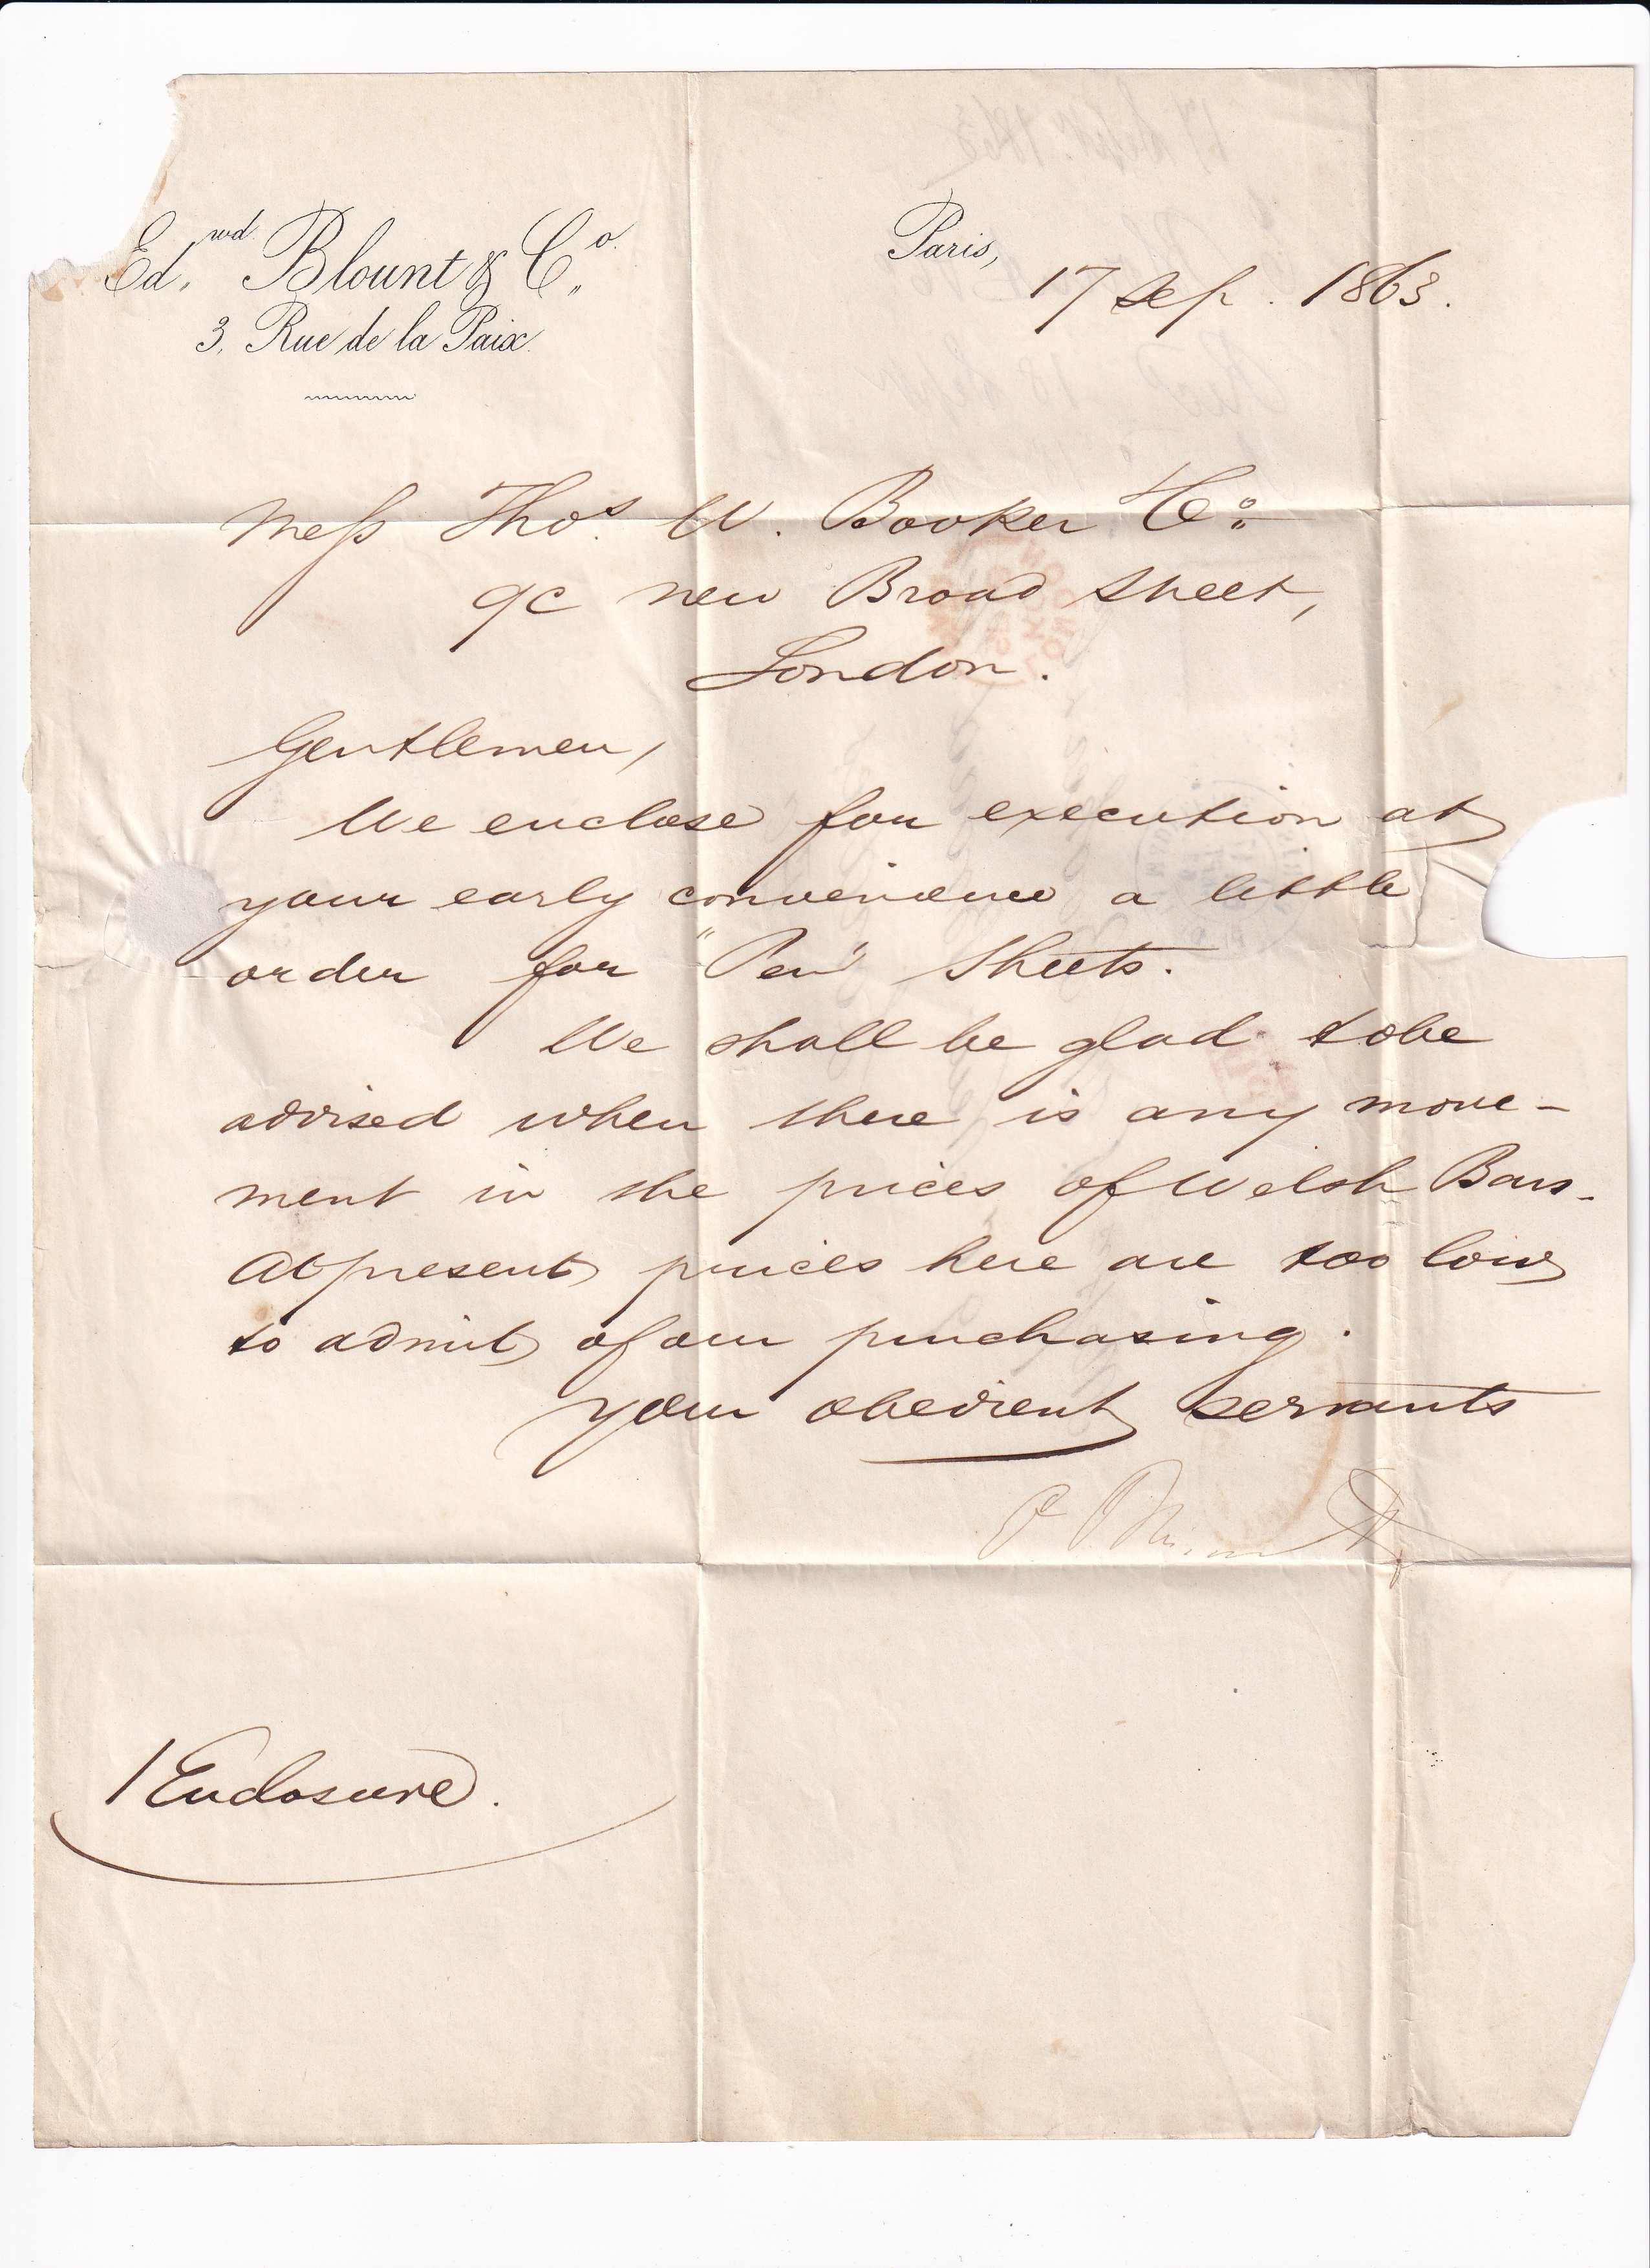 Edwd. Blount & Co.
3, Rue de la Paix
Paris,
17 Sep. 1863.
Mess Thos. W. Booker & Co.
9c New Broad Street,
London.
Gentlemen,
We enclose for execution at
your early convenience a little
order for "Pen" Sheets.
We shall be glad to be
advised when there is any move-
ment in the prices of Welsh Bars.
At present prices here are too low
to admit of our purchasing.
Your obedient servants
1 Enclosure.